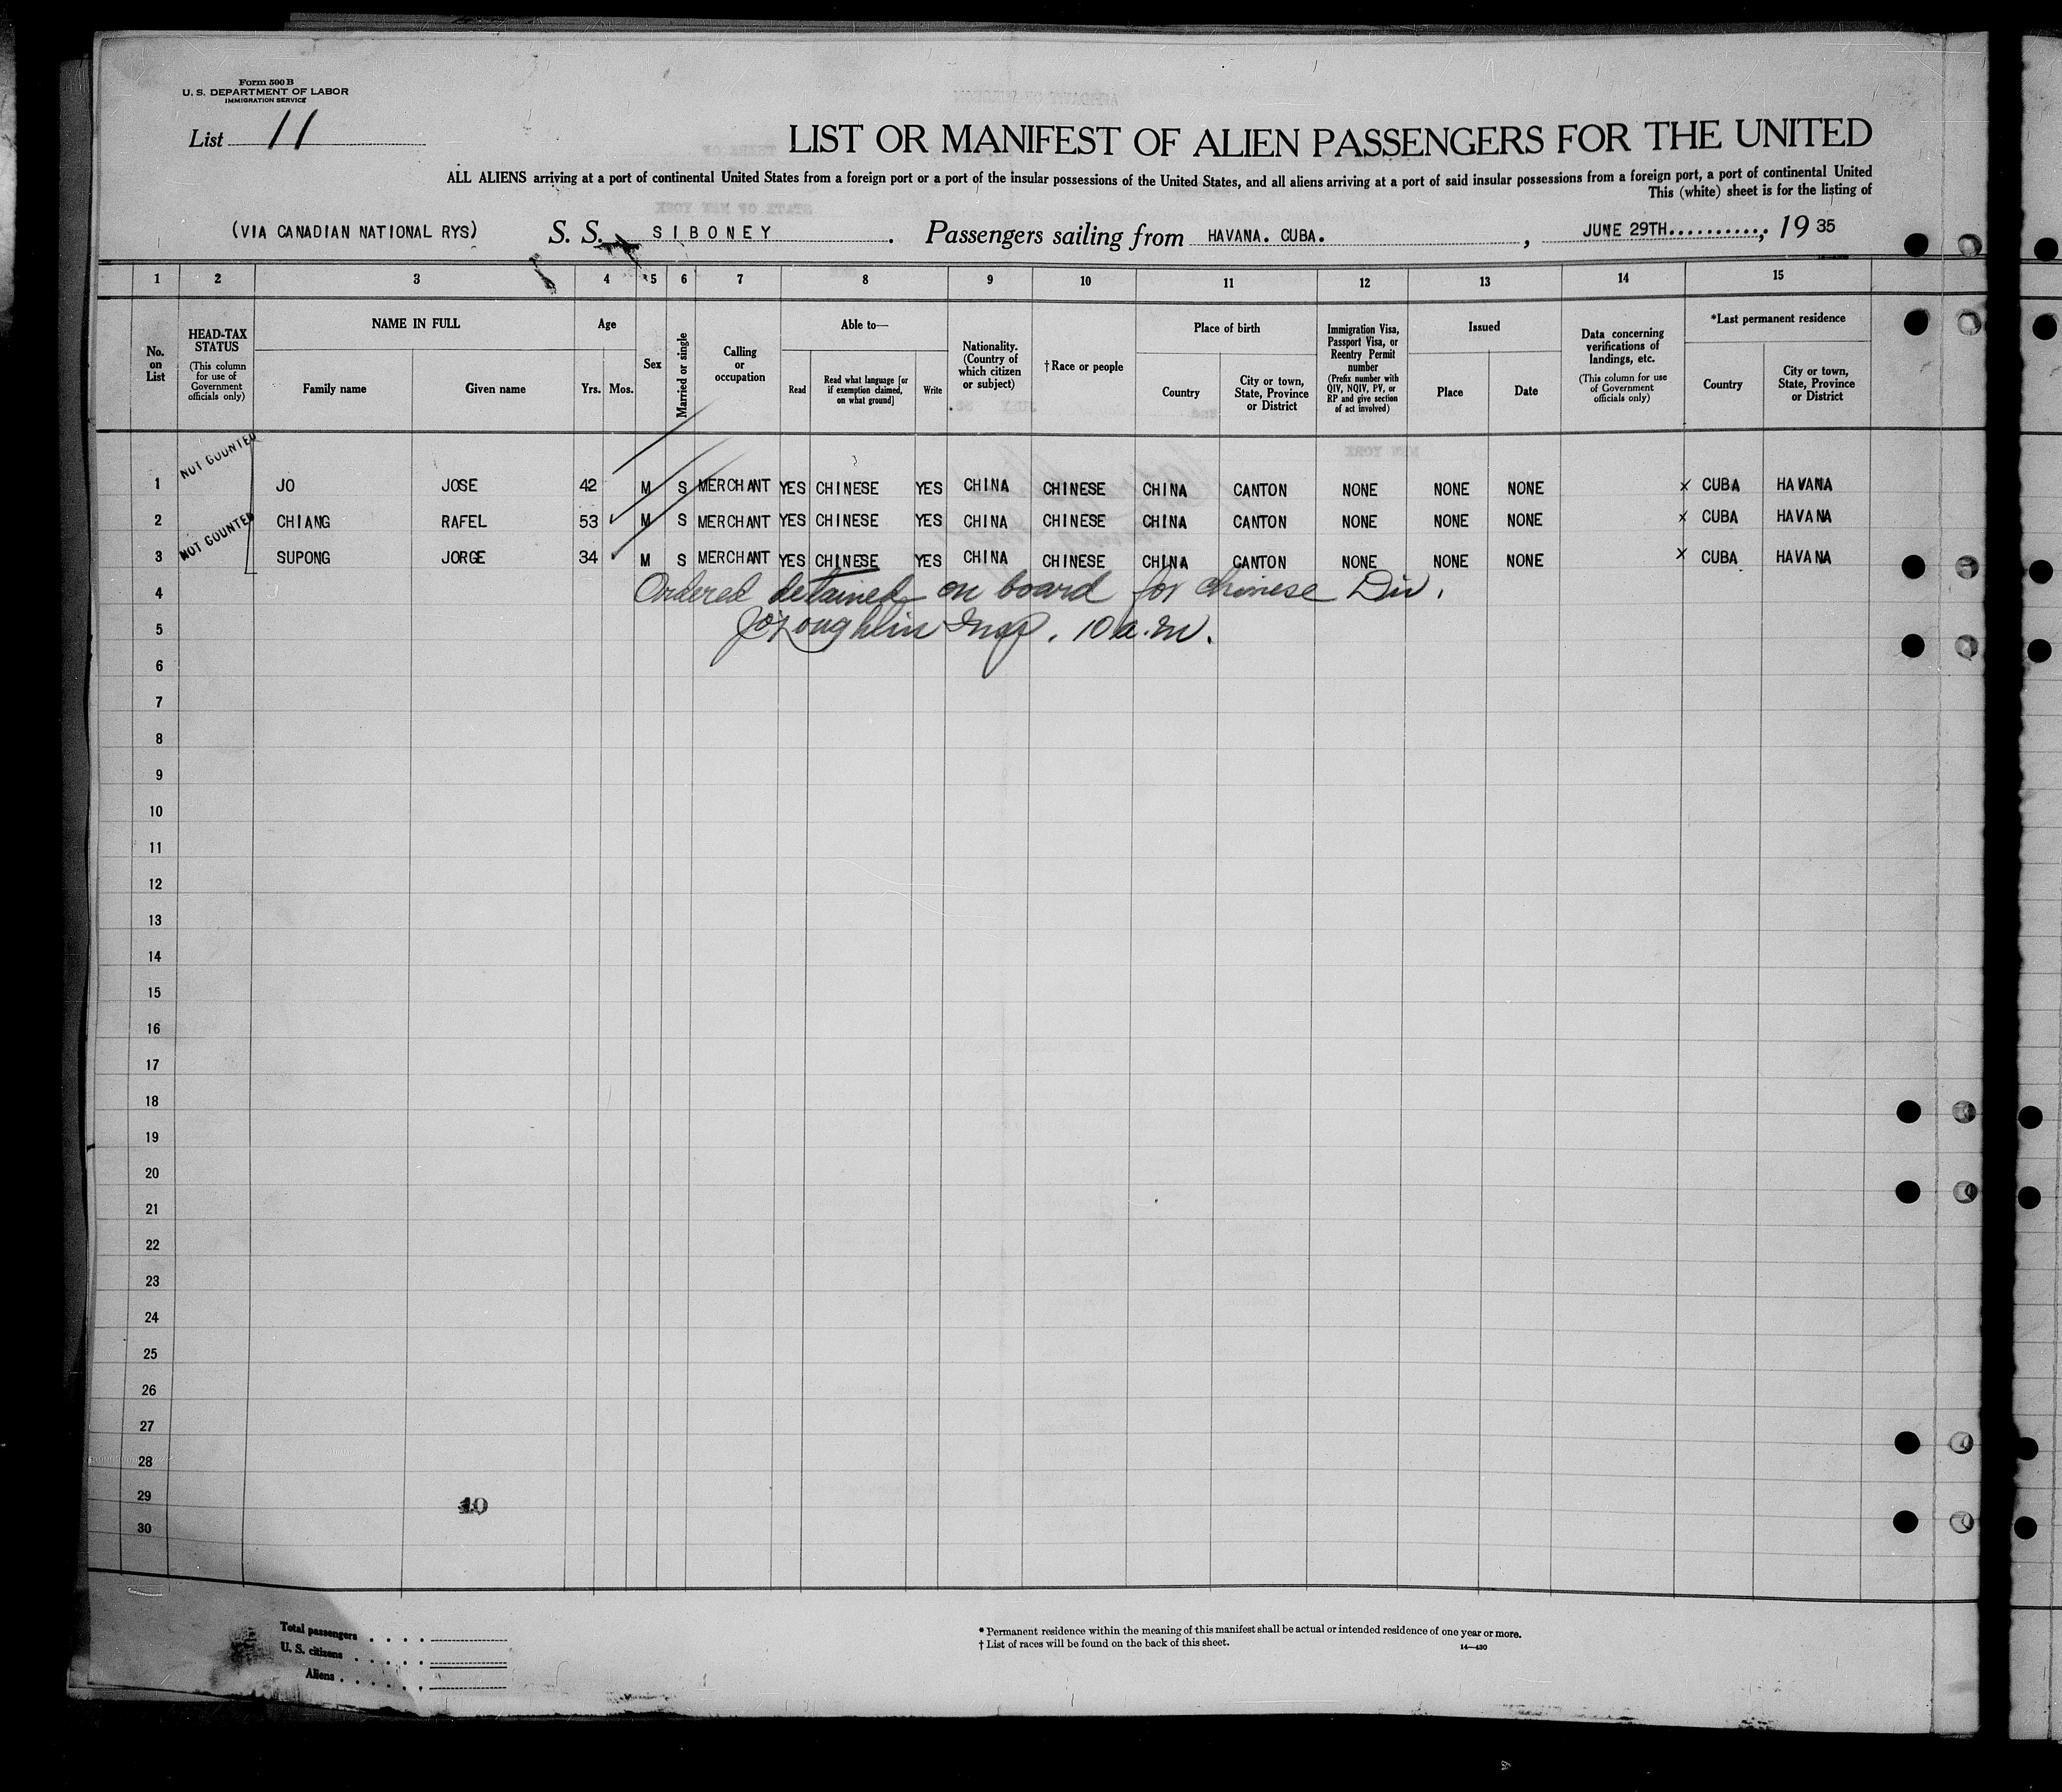 Form 500 B
U. S. DEPARTMENT OF LABOR
IMMIGRATION SERVICE
List 11
LIST OR MANIFEST OF ALIEN PASSENGERS FOR THE UNITED
ALL ALIENS arriving at a port of continental United States from a foreign port or a port of the insular possessions of the United States, and all aliens arriving at a port of said insular possessions from a foreign port, a port of continental United
This (white) sheet is for the listing of
(VIA CANADIAN NATIONAL RYS) S. S. SIBONEY . Passengers sailing from HAVANA. CUBA. , JUNE 29TH..........., 19 35
1 2 3 4 5 6 7 8 9 10 11 12 13 14 15
No. on List
HEAD-TAX STATUS
(This column for use of Government officials only)
NAME IN FULL
Family name Given name
Age
Yrs. Mos.
Sex
Married or single
Calling or occupation
Able to—
Read
Read what language [or if exemption claimed, on what ground]
Write
Nationality. (Country of which citizen or subject)
†Race or people
Place of birth
Country
City or town, State, Province or District
Immigration Visa, Passport Visa, or Reentry Permit number
(Prefix number with QIV, NQIV, PV, or RP and give section of act involved)
Issued
Place Date
Data concerning verifications of landings, etc.
(This column for use of Government officials only)
*Last permanent residence
Country
City or town, State, Province or District
NOT COUNTED
1 JO JOSE 42 M S MERCHANT YES CHINESE YES CHINA CHINESE CHINA CANTON NONE NONE NONE x CUBA HAVANA
2 CHIANG RAFEL 53 M S MERCHANT YES CHINESE YES CHINA CHINESE CHINA CANTON NONE NONE NONE x CUBA HAVANA
NOT COUNTED
3 SUPONG JORGE 34 M S MERCHANT YES CHINESE YES CHINA CHINESE CHINA CANTON NONE NONE NONE x CUBA HAVANA
4 Ordered detained on board for chinese Div.
5 J O'Loughlin Insp. 10 a.m.
6
7
8
9
10
11
12
13
14
15
16
17
18
19
20
21
22
23
24
25
26
27
28
29
30
Total passengers . . . .
U. S. citizens . . . . .
Aliens . . . . . .
* Permanent residence within the meaning of this manifest shall be actual or intended residence of one year or more.
† List of races will be found on the back of this sheet. 14—430